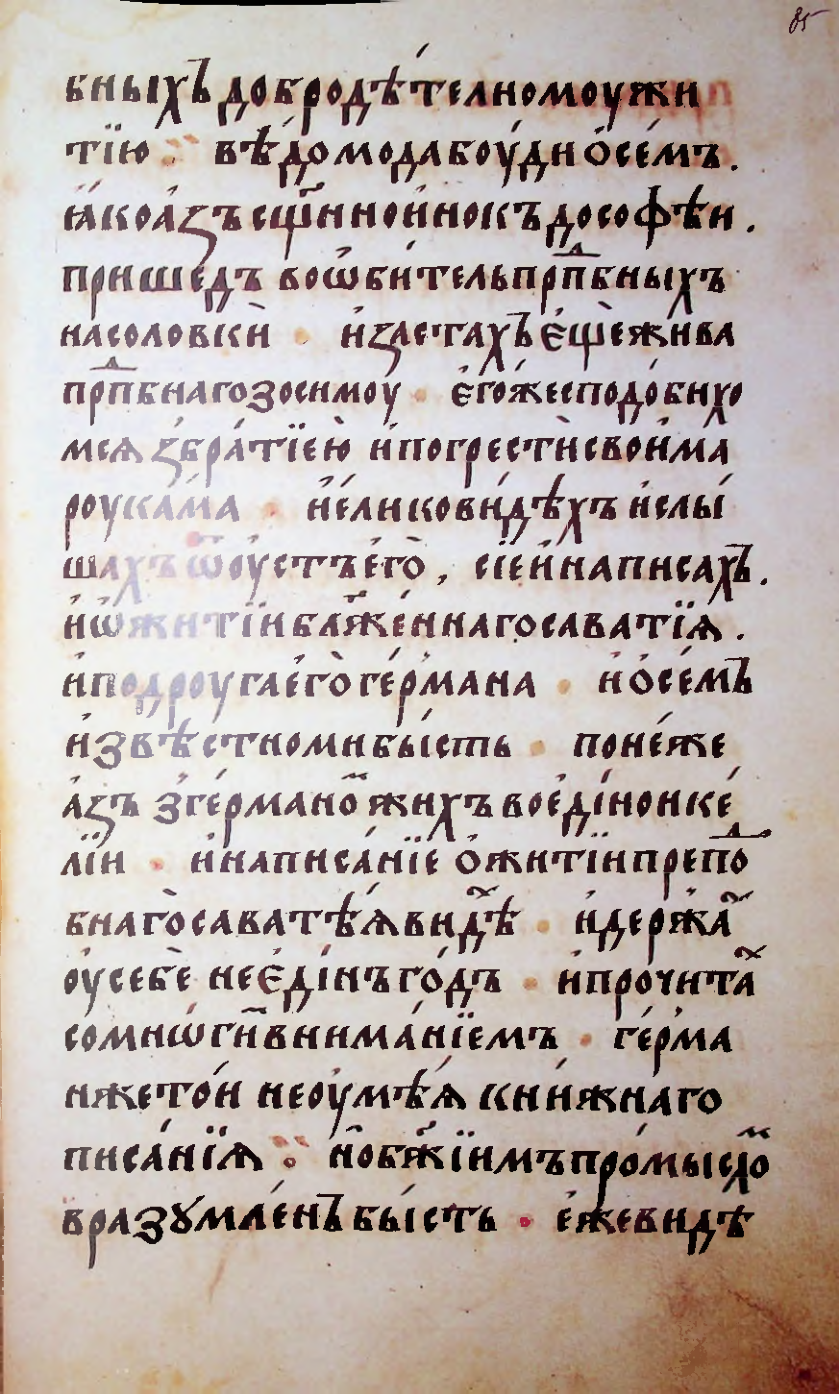 85
бныхъ добродѣ́телномоу жи
тїю : вѣ́домо да боу́дн ѡ҆ се́мъ .
ꙗ҆́ко а҆́зъ сщ҃нноинокъ дософѣи .
прише́дъ во ѡ҆би́тель прпⷣбныхъ
на соловки̑ · и҆ заста́хъ є҆щѐ жива
прпⷣбнаго зосимоу · є҆го́же сподо́бихо
мсѧ з бра́тїею и҆ погрестѝ свои́ма
роука́ма · и҆ е҆ли́ко ви́дѣхъ и҆ слы́
шахъ ѿ оу҆стъ е҆гѡ̀ , сїѐ и҆ написахъ .
и҆ ѡ҆ житїи бл҃же́ннаго саватїѧ .
и҆ подроуга е҆гѡ̀ ге́рмана · и҆ ѡ҆ се́мъ
и҆звѣ́стно ми бы́сть · поне́же
а҆́зъ з ге́рманоⷨ жи́хъ во е҆ди́нои ке́
лїи · и҆ написа́нїе ѡ҆ житїи препоⷣ
бнагѡ̀ саватѣ́ѧ ви́дѣⷯ · и҆ держа́ⷯ
оу҆ себѐ не є҆ди́нъ го́дъ · и҆ прочита́ⷯ
со мнѡ́гиⷨ внима́нїемъ · ге́рма
нже то́и не оу҆мѣ́ѧ кни́жнаго
писа́нїѧ : но б҃жїимъ про́мысло́ⷨ
вразꙋмле́нъ бы́сть · е҆́же видѣ